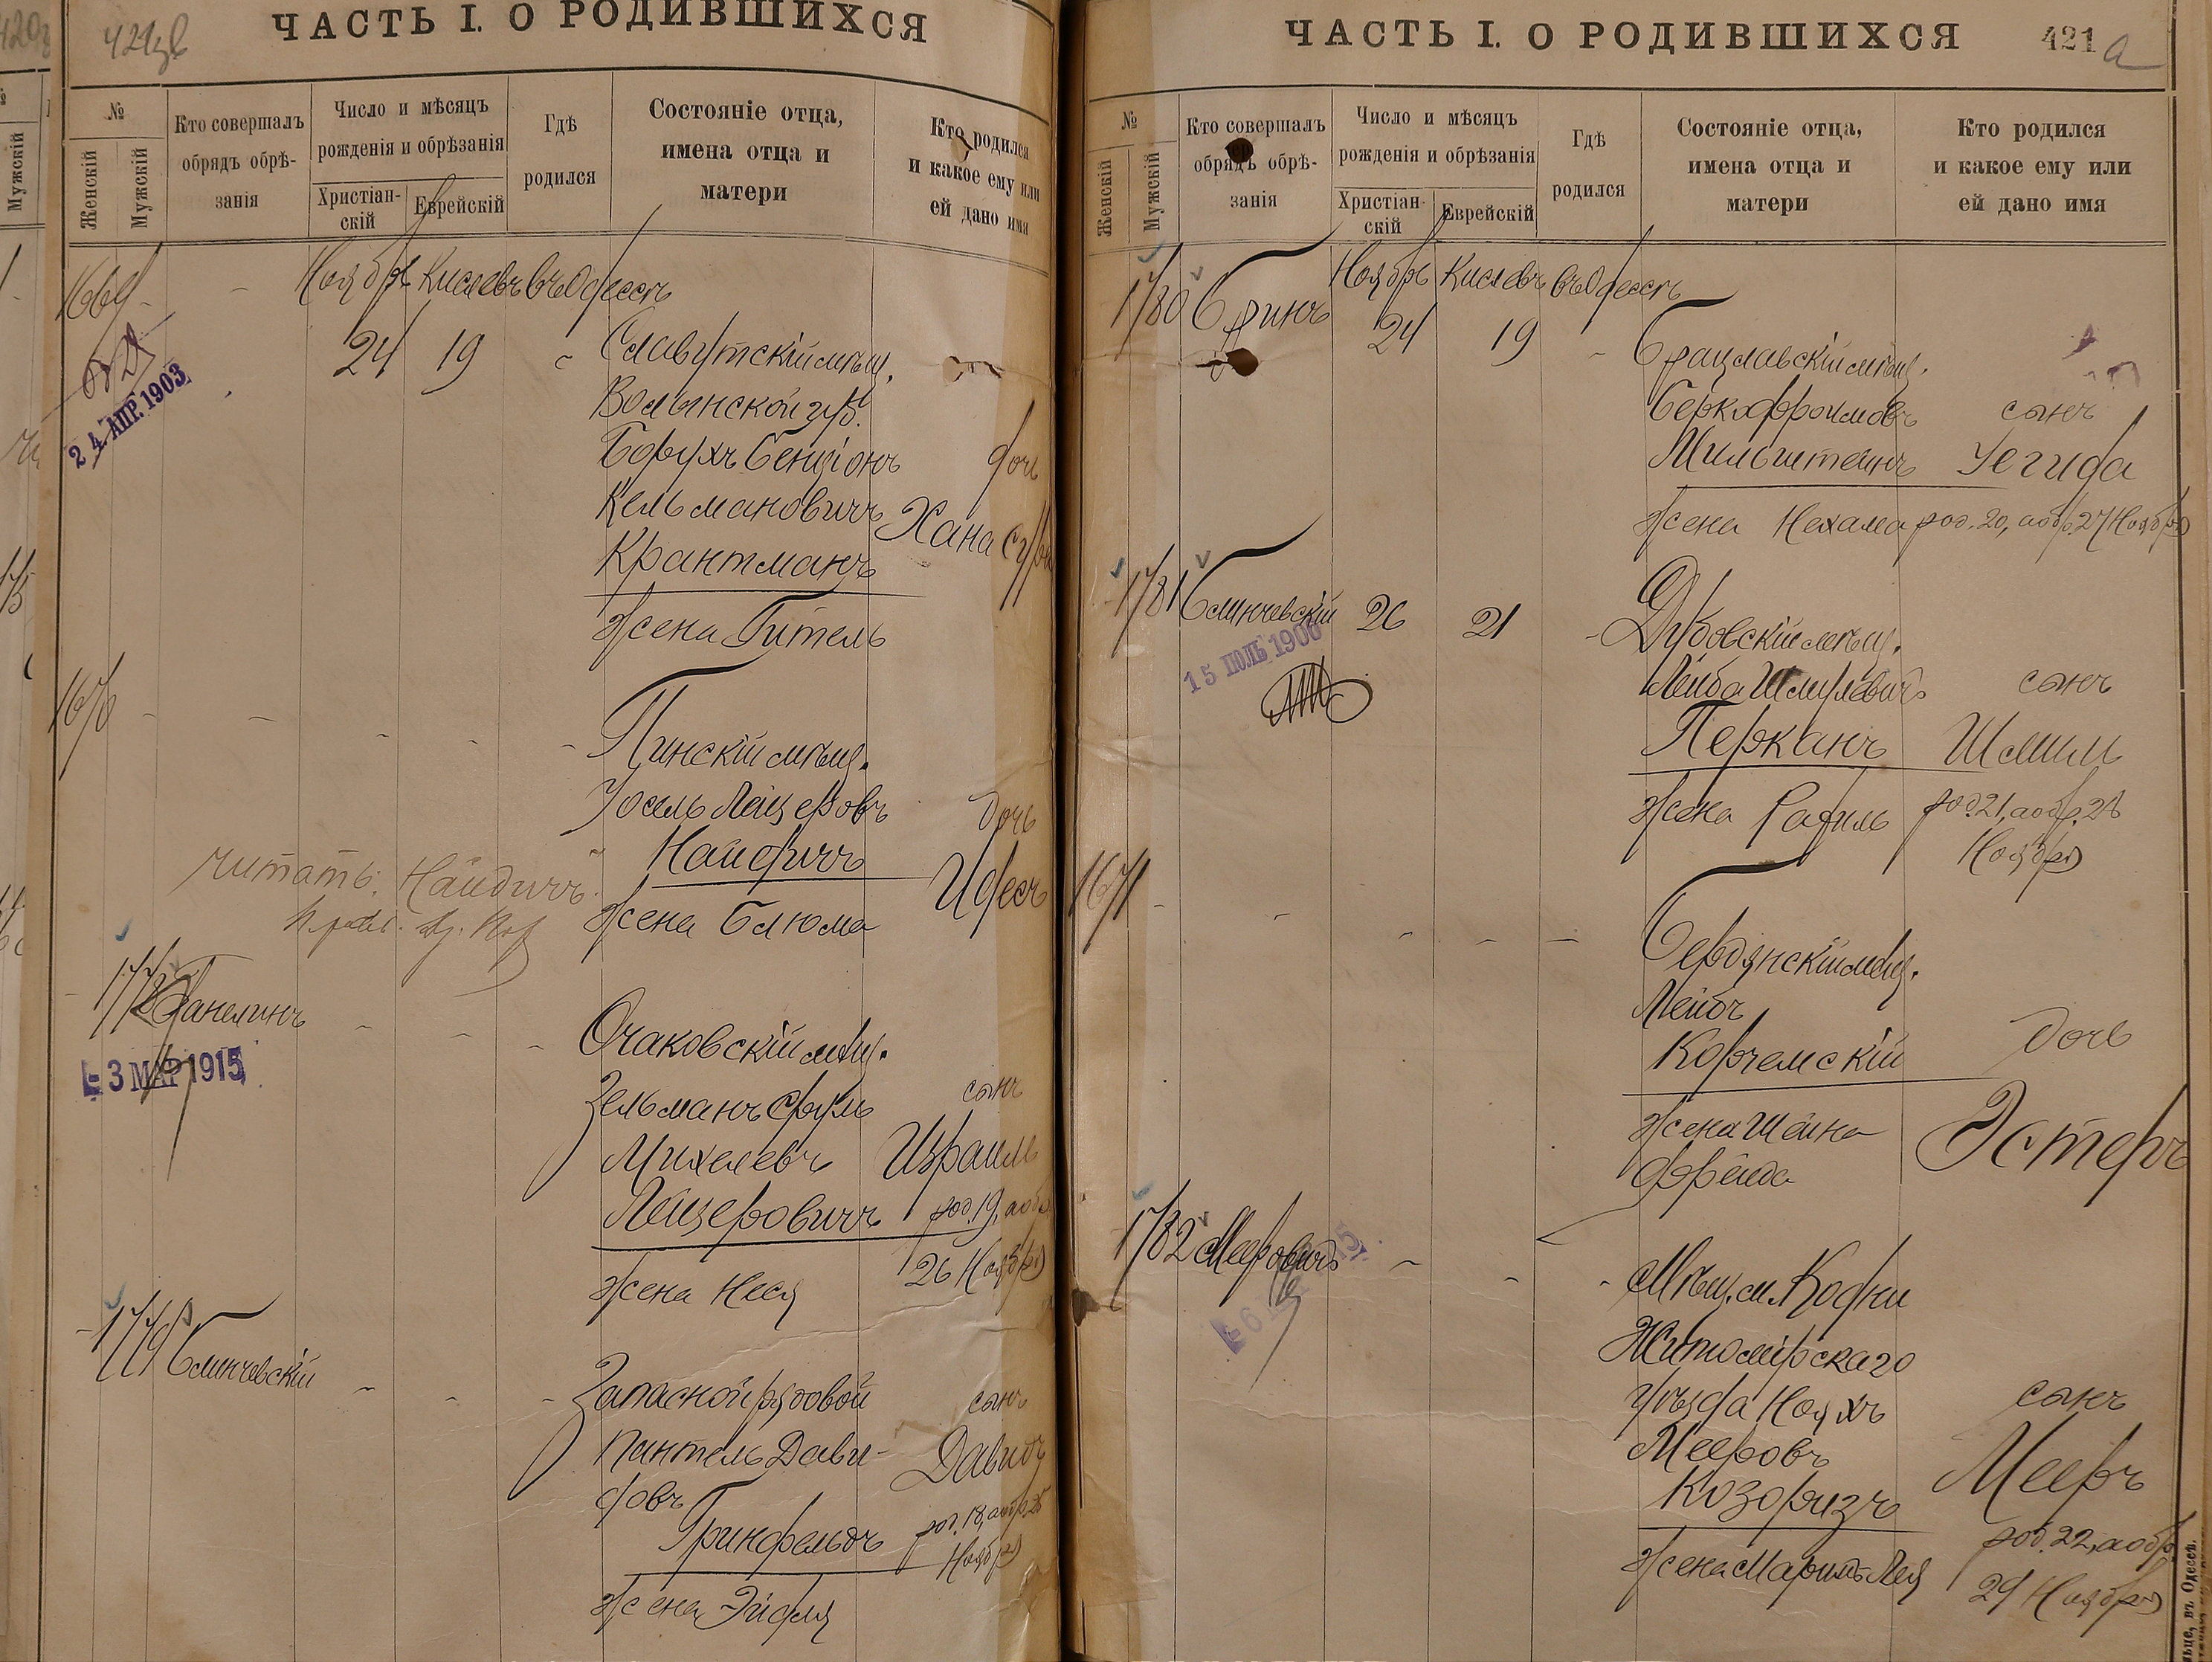 421зв
ЧАСТЬ I. О РОДИВШИХСЯ
№
Женскій
Мужскій
Кто совершалъ
обрядъ обрѣ-
занія
Число и мѣсяцъ
рожденія и обрѣзанія
Христіан-
скій
Еврейскій
Гдѣ
родился
Состояніе отца,
имена отца и
матери
Кто родился
и какое ему или
ей дано имя
1669 - - Ноябрь Кислевъ въ Одессѣ
24 19 Славутскій мѣщ.
Волынской губ.
Борухъ Бенціонъ дочь
Кельмановичъ Хана Сура
Крантманъ
жена Гитель
2 4. АПР. 1903
1670 - - - - - Пинскій мѣщ.
Іосель Лейзеровъ дочь
Найдичъ Идесъ
жена Блюма
читать: Найдичъ.
1778 Ганелинъ - - - Очаковскій мѣщ.
Зельманъ Сруль сынъ
Михелевъ Израиль
Лейзеровичъ род. 19, а обр.
26 Ноября
жена Неся
3 МАР 1915
1779 Блинчевскій - - - Запасной рядовой сынъ
Пантель Дави- Давидъ
довъ
Гринфельдъ род. 18, а обр. 25
Ноября
жена Эйдля
ЧАСТЬ I. О РОДИВШИХСЯ
421 а
№
Женскій
Мужскій
Кто совершалъ
обрядъ обрѣ-
занія
Число и мѣсяцъ
рожденія и обрѣзанія
Христіан-
скій
Еврейскій
Гдѣ
родился
Состояніе отца,
имена отца и
матери
Кто родился
и какое ему или
ей дано имя
1780 Бринъ Ноябрь Кислевъ въ Одессѣ
24 19 - Брацлавскій мѣщ.
Берко Фроимовъ сынъ
Мильштейнъ Уегида
жена Нехама род. 20, а обр. 27 Ноября
1781 Блинчевскій 26 21 - Дубовскій мѣщ.
15 ІЮЛЬ 1906
Лейба Шмулевичъ сынъ
Перканъ Шмиль
жена Рахиль род. 21, а обр. 28
Ноября
1671 - - - - - Бердянскій мѣщ.
Лейбъ
Корчемскій дочь
жена Шейна Эстеръ
Фрейда
1782 Мееровичъ - - - Мѣщ. м. Кодни
Житомірскаго
уѣзда Ноахъ сынъ
Мееровъ Мееръ
Козоризъ
род. 22, а обр.
жена Маріямъ Лея 29 Ноября